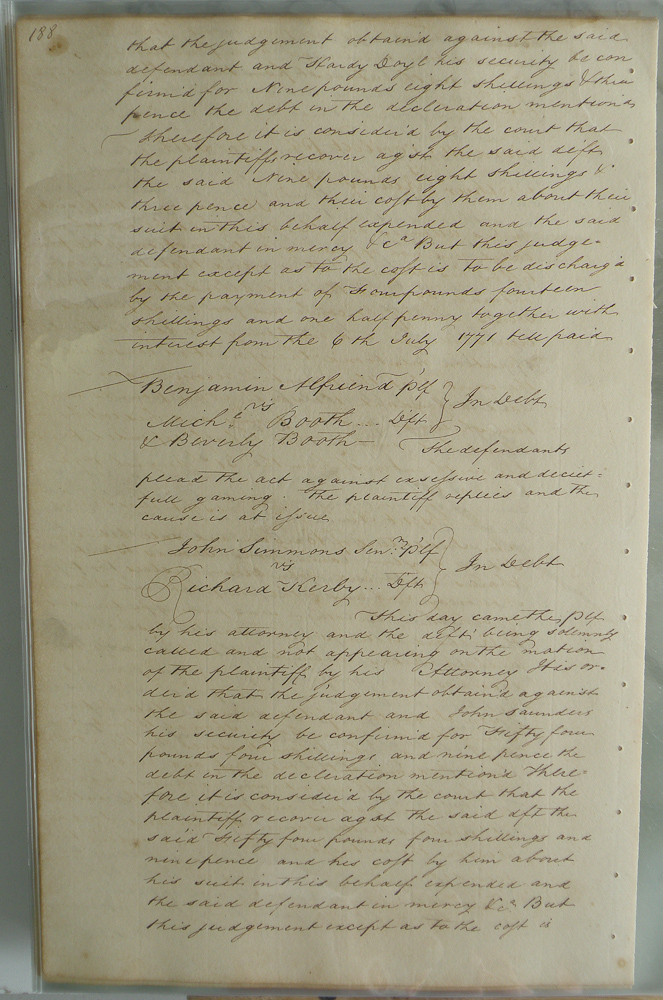 188
that the judgement obtain'd against the said
defendant and Hardy Doyl his security be con
firm'd for Nine pounds eight shillings & three
pence the debt in the decleration mention'd
Therefore it is consider'd by the court that
the plaintiffs recover agst the said deft
the said Nine pounds eight shillings &
three pence and their cost by them about their
suit in this behalf expended and the said
defendant in mercy &ca But this judge=
ment except as to the cost is to be discharg'd
by the payment of Four pounds fourteen
shillings and one half penny together with
interest from the 6th July 1771 till paid
Benjamin Alfriend plf
vs
Michl Booth ... Dft
& Beverly Booth
In Debt
The defendants
plead the act against excessive and deceit=
full gaming. The plaintiff replies and the
cause is at issue
John Simmons Senr plf
vs
Richard Kerby ... Dft
In Debt
This day came the plf
by his attorney and the deft being solemnly
called and not appearing on the motion
of the plaintiff by his Attorney It is or=
der'd that the judgement obtain'd against
the said defendant and John Saunders
his security be confirm'd for Fifty four
pounds four shillings and nine pence the
debt in the decleration mention'd There=
fore it is consider'd by the court that the
plaintiff recover agst the said dft the
said Fifty four pounds four shillings and
nine pence and his cost by him about
his suit in this behalf expended and
the said defendant in mercy &ca But
this judgement except as to the cost is